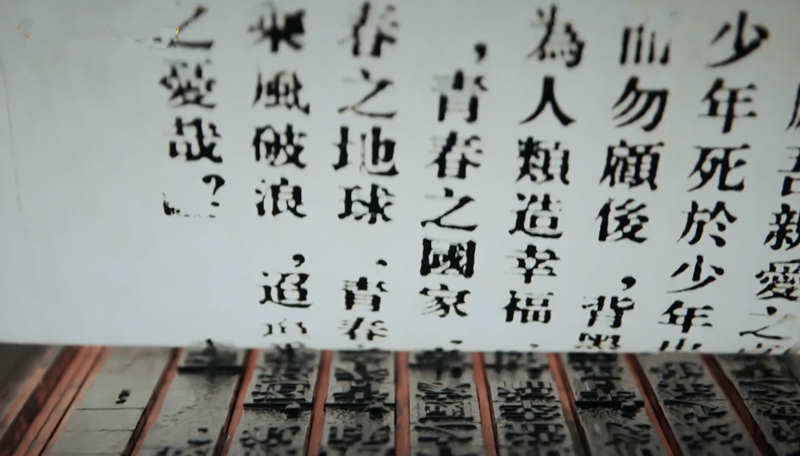 吾親愛之
少年死於少年
而勿顧後，背
為人類造幸福
，青春之國家
春之地球、青春
乘風破浪，追
之愛哉？